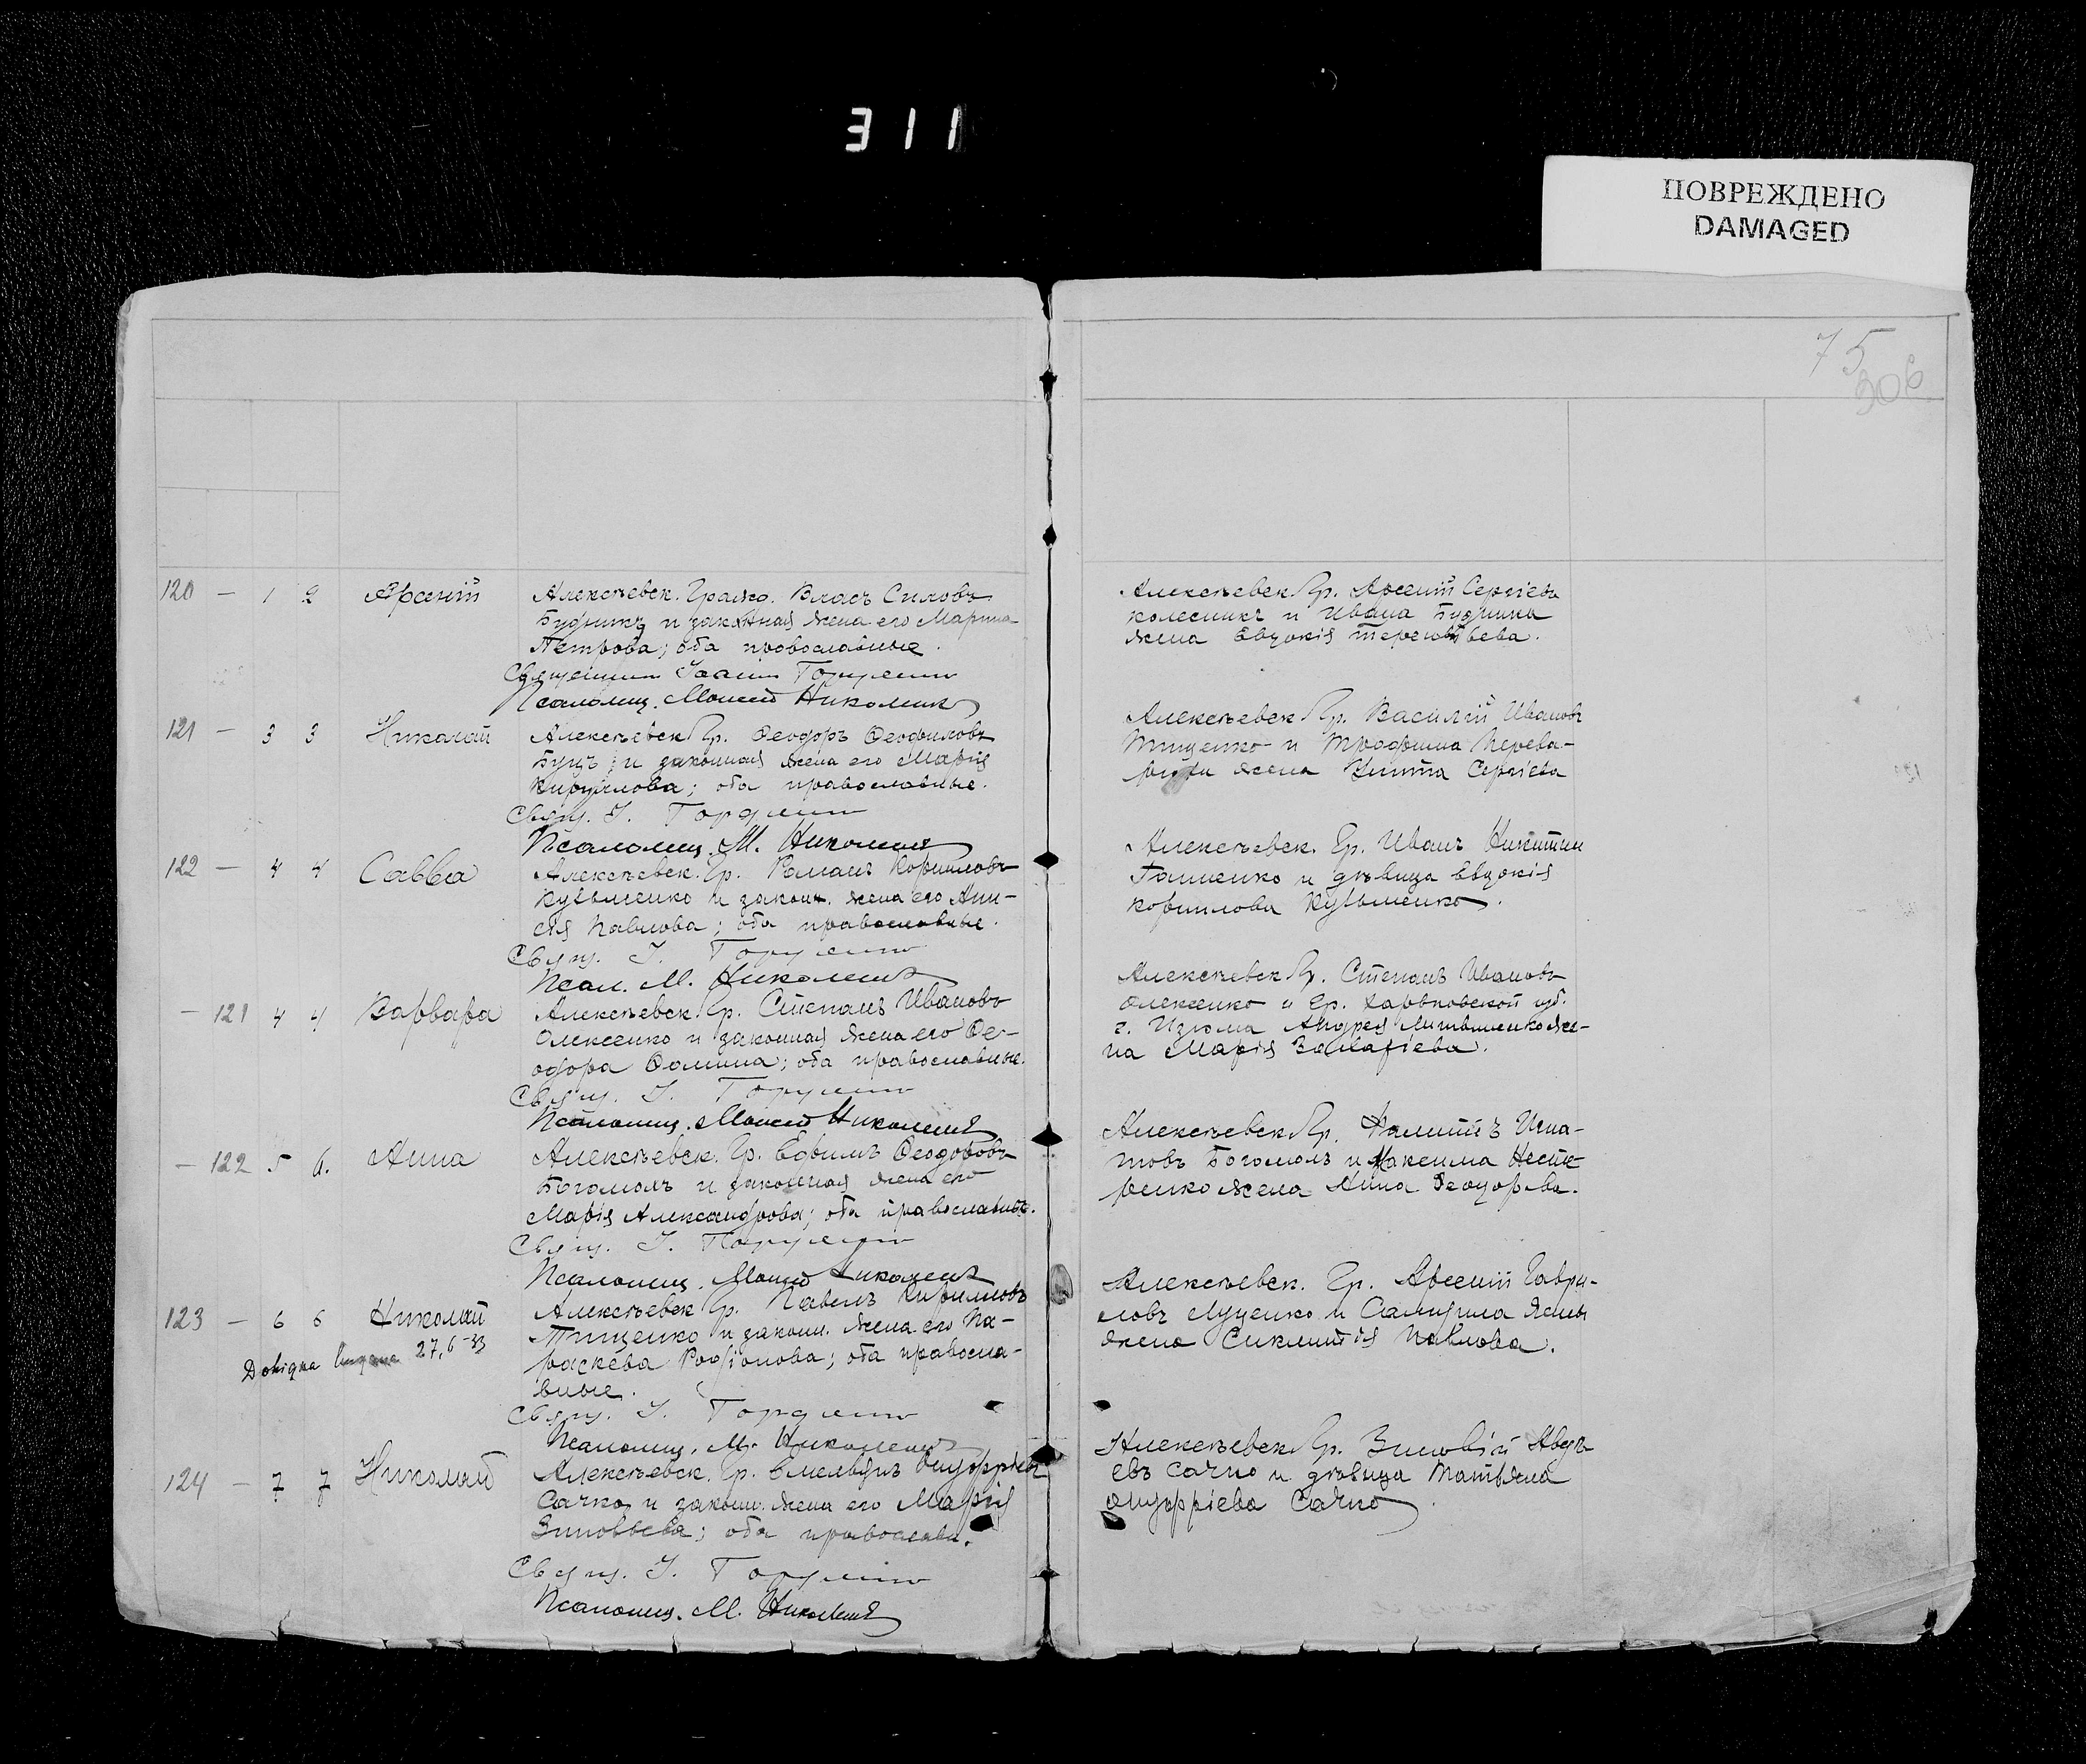 311
ПОВРЕЖДЕНО
DAMAGED
75
306
120 — 1 2 Арсеній
Алексѣевск. Гражд. Власъ Силовъ
Будникъ и законная жена его Марина
Петрова; оба православные.
Священник Іоанн Гордиенко
Псаломщ. Моисей Николенко
Алексѣевск. Гр. Арсеній Сергіевъ
колесникъ и Ивана Будника
жена Евдокія Терентьева.
121 — 3 3 Николай
Алексѣевск. Гр. Ѳеодоръ Ѳеофиловъ
Буцъ и законная жена его Марія
Кириллова; оба православные.
Свящ. І. Гордиенко
Псаломщ. М. Николенко
Алексѣевск. Гр. Василій Ивановъ
Тищенко и Трофима
жена Сергіева
122 — 4 4 Савва
Алексѣевск. Гр. Романъ Корниловъ
Кузьменко и законн. жена его Ани-
сія Павлова; оба православные.
Свящ. І. Гордиенко
Псал. М. Николенко
Алексѣевск. Гр. Иванъ Никитин
и дѣвица Евдокія
Корнилова Кузьменко.
— 121 4 4 Варвара
Алексѣевск. Гр. Степанъ Ивановъ
Олексенко и законная жена его Ѳе-
одора Ѳомина; оба православные.
Свящ. І. Гордиенко
Псаломщ. Моисей Николенко
Алексѣевск. Гр. Степанъ Ивановъ
Олексенко и Гр. Харьковской губ.
г. Изюма Андрея Литвиненко же-
на Марія Захаріева.
— 122 5 6. Анна
Алексѣевск. Гр. Ефимъ Ѳеодоровъ
Богомолъ и законная жена его
Марія Александрова; оба православные.
Свящ. І. Гордиенко
Псаломщ. Моисей Николенко
Алексѣевск. Гр. Игна-
товъ Богомолъ и Максима Несте-
ренко жена Анна Ѳеодорова.
123 — 6 6 Николай
27,6-33
Алексѣевск. Гр. Павелъ Кирилловъ
Тищенко и законн. жена его Па-
раскева Родіонова; оба правосла-
вные.
Свящ. І. Гордиенко
Псаломщ. М. Николенко
Алексѣевск. Гр. Арсеній Гаври-
ловъ Луценко и
жена Павлова.
124 — 7 7 Николай
Алексѣевск. Гр. Емельянъ
Сачко и законн. жена его Марія
Зиновьева; оба православн.
Свящ. І. Гордиенко
Псаломщ. М. Николенко
Алексѣевск. Гр. Зиновій
Сачко и дѣвица Татьяна
Сачко